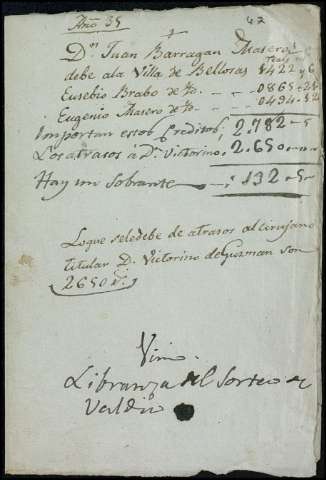 Año 35 42
Dn. Juan Barragan Masero
debe ala Villa de Bellosas 1422 y 6
Eusebio Brabo de Yd. 0865
Eugenio Masero de Yd. 0494
Importan estos Creditos, 2.782 - 5
Los atrasos à Dn. Victorino, 2.650
Hay un Sobrante 132 - 5
Loque seledebe de atrasos al cirujano
titular D. Victorino de Guzman son
2650 rs.
Libranza del Sorteo
Valdio